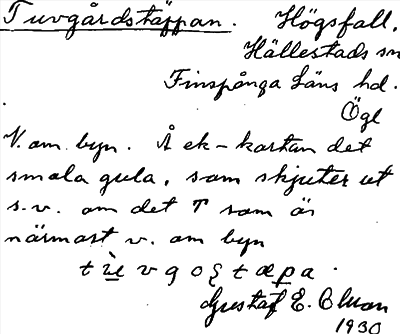 Tuvgårdstäppan. Högsfall.
Hällestads sn
Finspånga Läns hd.
Ögl
V. om byn. Å ek-kartan det
smala gula, som skjuter ut
s.v. om det T som är
närmast v. om byn
Gustaf E. Olson
1930